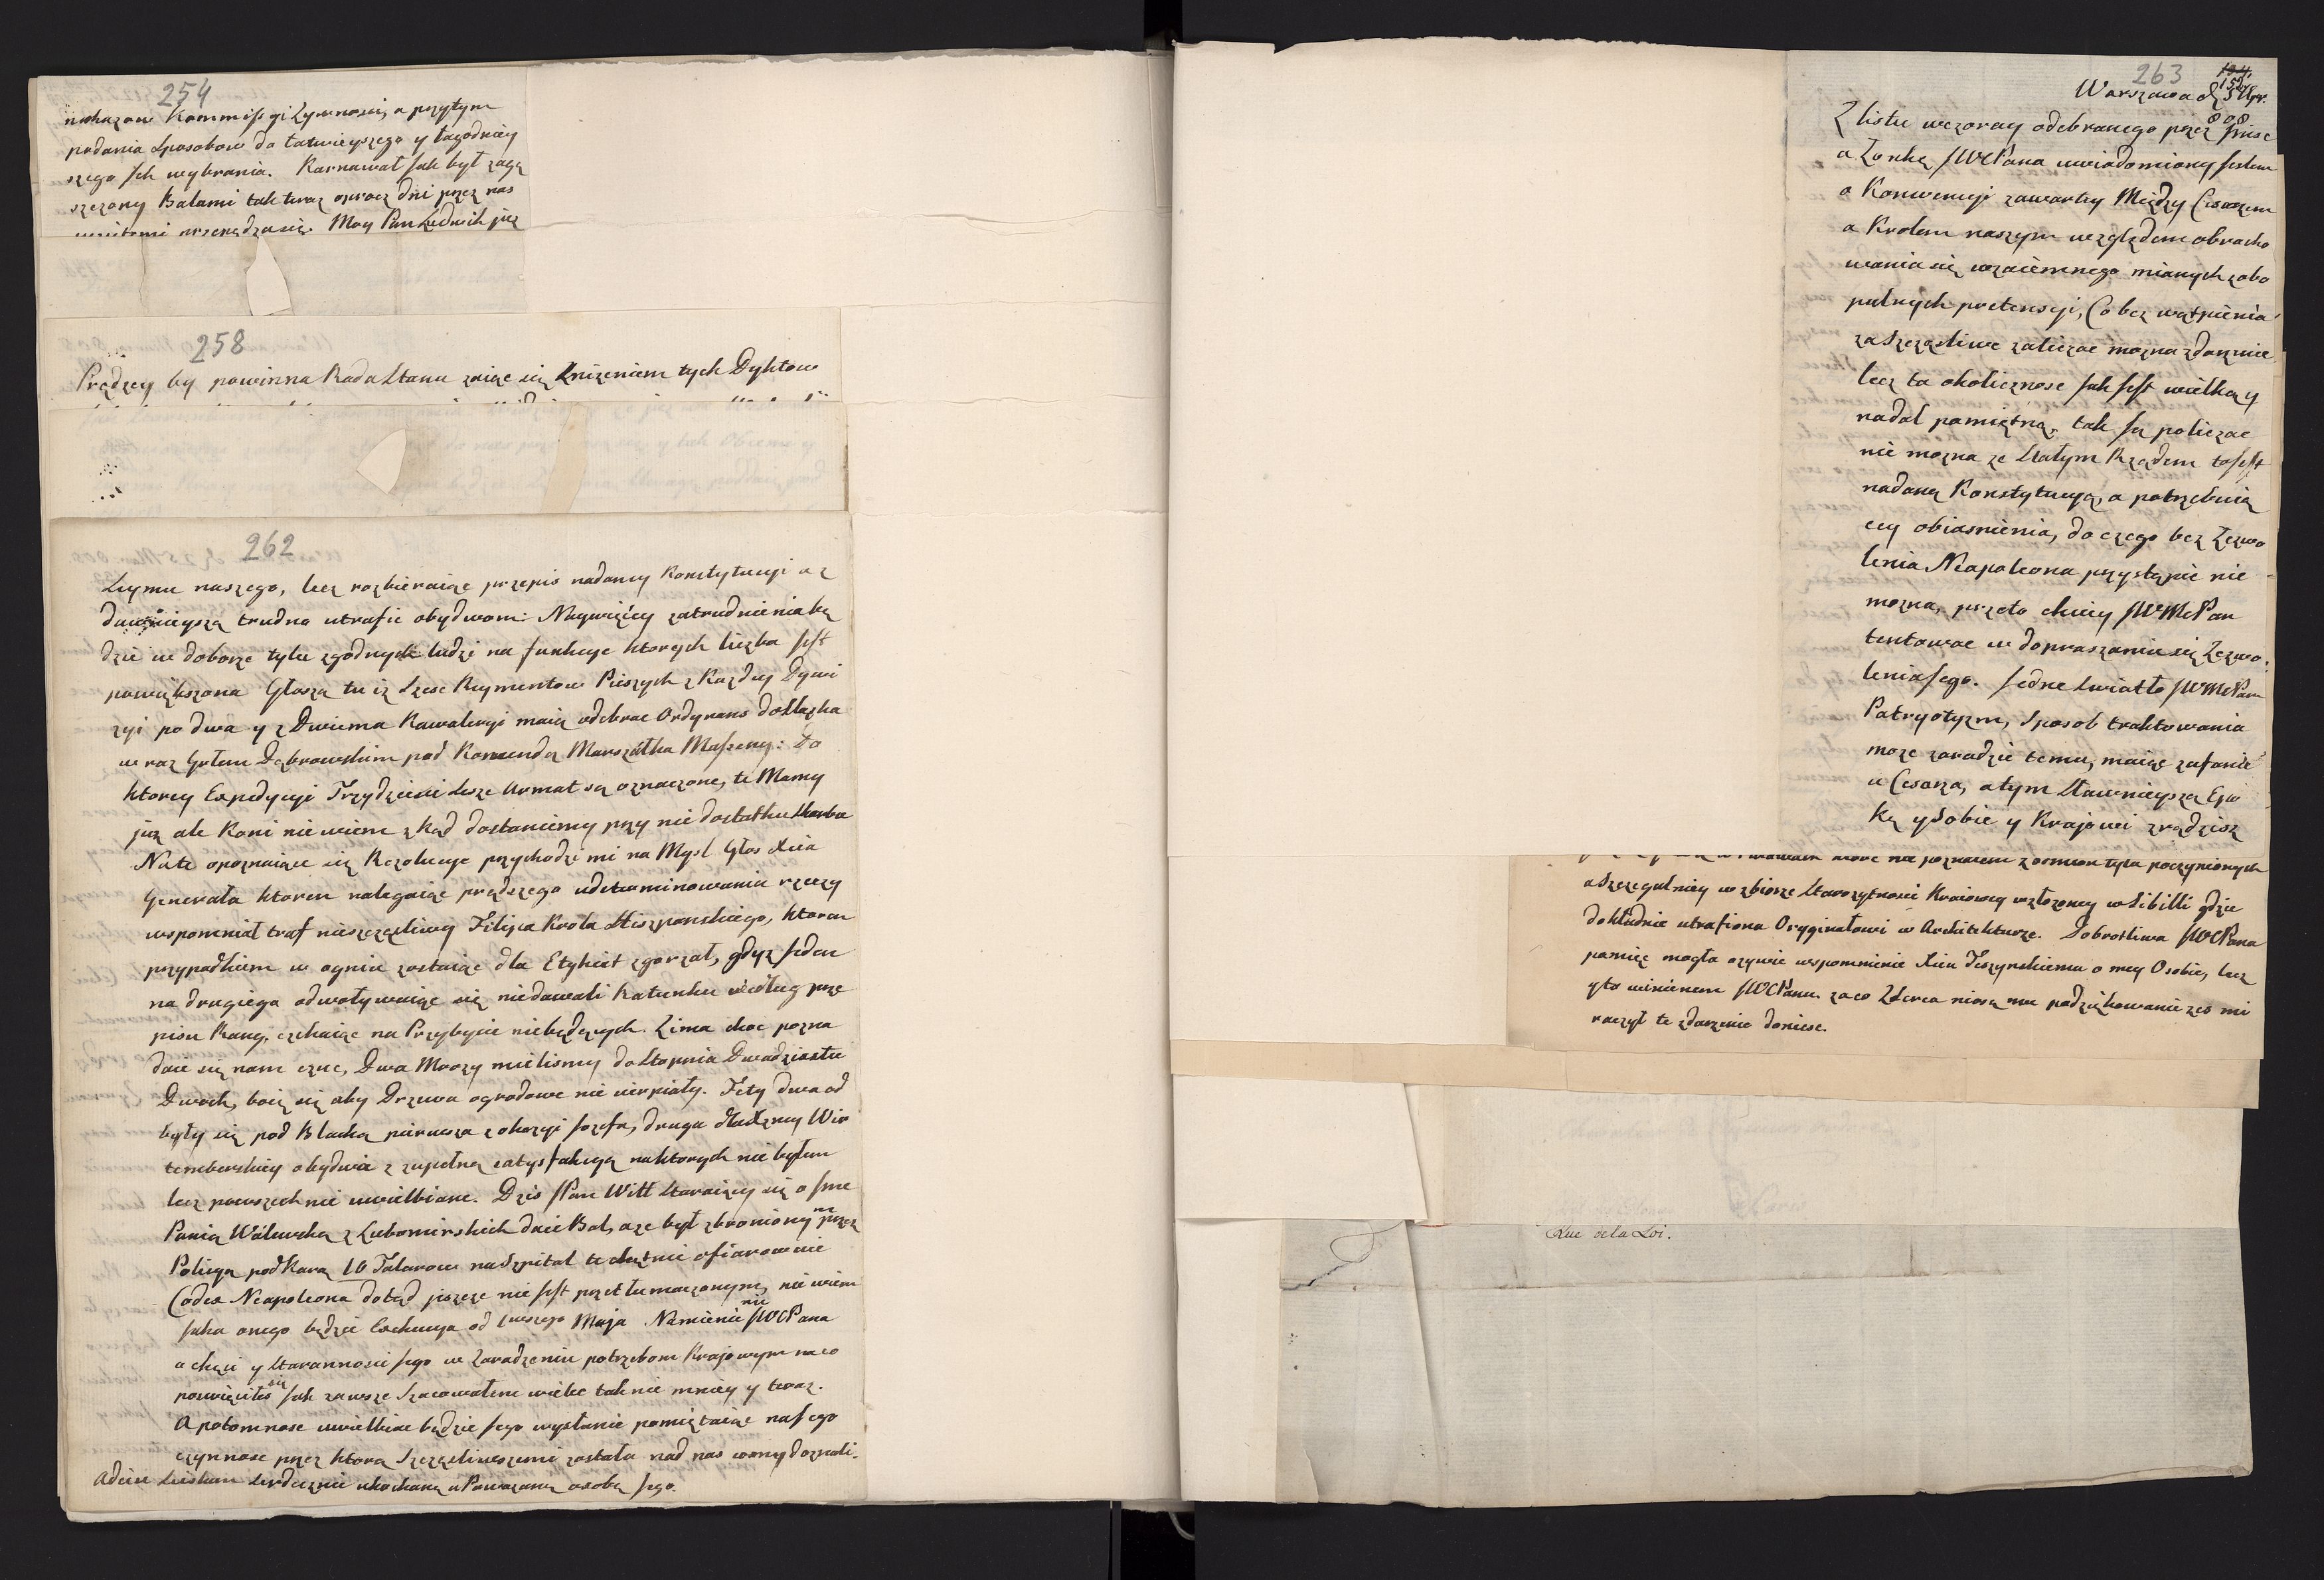 254
nakazow Kommissyi Zywnosci, a przytym
podania sposobow do łatwieyszego y łagodniey
szego Jch wybrania. Karnawał jak był zagą
szczony Balami tak teraz oprocz dni przez nas
Moy Pan Ludwik już
258
Prędzey by powinna Rada Stanu zaiąc się zniżeniem tych Dyktow
262
Seymu naszego, lecz rozbieraiąc przepis nadaney Konstytucyi a z
dawnieyszą trudno utrafic obydwom: Naywięcey zatrudnienia bę
dzie w doborze tylu zgodnych ludzi na funkcye ktorych liczba jest
powiększona Głoszą tu iż szesc Reymentow Pieszych z Każdey Dywi
zyi po dwa y z Dwiema Kawaleryi maią odebrac Ordynans do Szląska
w raz Grłem Dąbrowskim pod Komendą Marszałka Masseny: Do
ktorey Expedycyi Trzydziesci szesc Armat są oznaczone, te Mamy
już ale Koni nie wiem zkąd dostaniemy przy nie dostatku Skarbu
Na te opoznaiące się Rezolucye przychodzi mi na Mysl Głos Xcia
Generała ktoren nalegaiąc prędszego udeterminowania rzeczy
wspomniał traf nieszczęsliwy Filipa Krola Hiszpanskiego, ktoren
przypadkiem w ogniu zostaiąc dla Etykiet zgorzał, gdyż jeden
na drugiego odwoływaiąc się niedawali Ratunku według prze
pisu Rangi, czekaiąc na Przybycie niebędących. Zima choc pozna
daie się nam czuc, Dwa Mrozy mielismy do Stopnia Dwadziestu
Dwoch, boię się aby Drzewa ogrodowe nie cierpiały. Fety dwa od
były się pod Blachą pierwsza z okazyi Jozefa, druga dla Xzney Wir
temberskiey obydwie z zupełną satysfakcyą na ktorych nie byłem
lecz powszechnie uwielbiane. Dzis JPan Witt staraiący się o Jme
Panią Walewską z Lubomirskich daie Bal, a że był zbroniony przez
Policyą pod Karą 10 Talarow na Szpital te chętnie ofiarowuie
Codex Neapoleona dotąd jeszcze nie jest przetłumaczonym, nie wiem
jaka onego będzie Exekucya od 1wszego Maja. Namienienie JWCPana
o chęci y staranności Jego w Zaradzeniu potrzebom Krajowym na co
poswięciłes się jak zawsze szacowałem wielce tak nie mniey y teraz.
A potomnosc uwielbiac będzie Jego wysłanie pamiętaiąc na Jego
czynnosc przez ktorą szczęsliwszemi
Adieu Sciskam serdecznie ukochaną u Poważaną osobę Jego.
263
152
Warszawa d 5 Apr.
808
Z listu wczoray odebranego przez Jmsc
a Zonkę JWCPana uwiadomiony jestem
o Konwencyi zawartey Między Cesarzem
a Krolem naszym względem obracho
wania się wzaiemnego mianych z obo
pulnych pretensyi, Co bez wątpienia
za szczęsliwe zaliczac można zdarzenie
lecz ta okolicznosc jak jest wielką y
nadal pamiętną, tak ją policzac
nie można ze Stałym Rządem to jest
nadaną Konstytucyą, a potrzebuią
cey obiasnienia, do czego bez Zezwo
lenia Neapoleona przystąpic nie
można, przeto chciey JWMcPan
tentowac w dopraszaniu się Zezwo
lenia Jego. Jedne Swiatło JWMcPana
Patryotyzm, Sposob traktowania
może zaradzic temu, maiąc zafanie
u Cesarza, a tym Sławnieyszą Epo
kę y Sobie y Krajowi zrządzisz
a szczegulniey w zbiorze Starożytnosci Kraiowey w złożoney w Sibilli gdzie
dokładnie utrafiona Oryginałowi w Architekturze. Dobrotliwa JWCPana
pamięc mogła ozywic wspomnienie Xciu Jeszynskiemu o mey Osobie, lecz
y to winienem JWCPanu. za co z Serca niosą mu podziękowanie żes mi
raczył te zdarzenie doniesc.
Rue de la Loi.